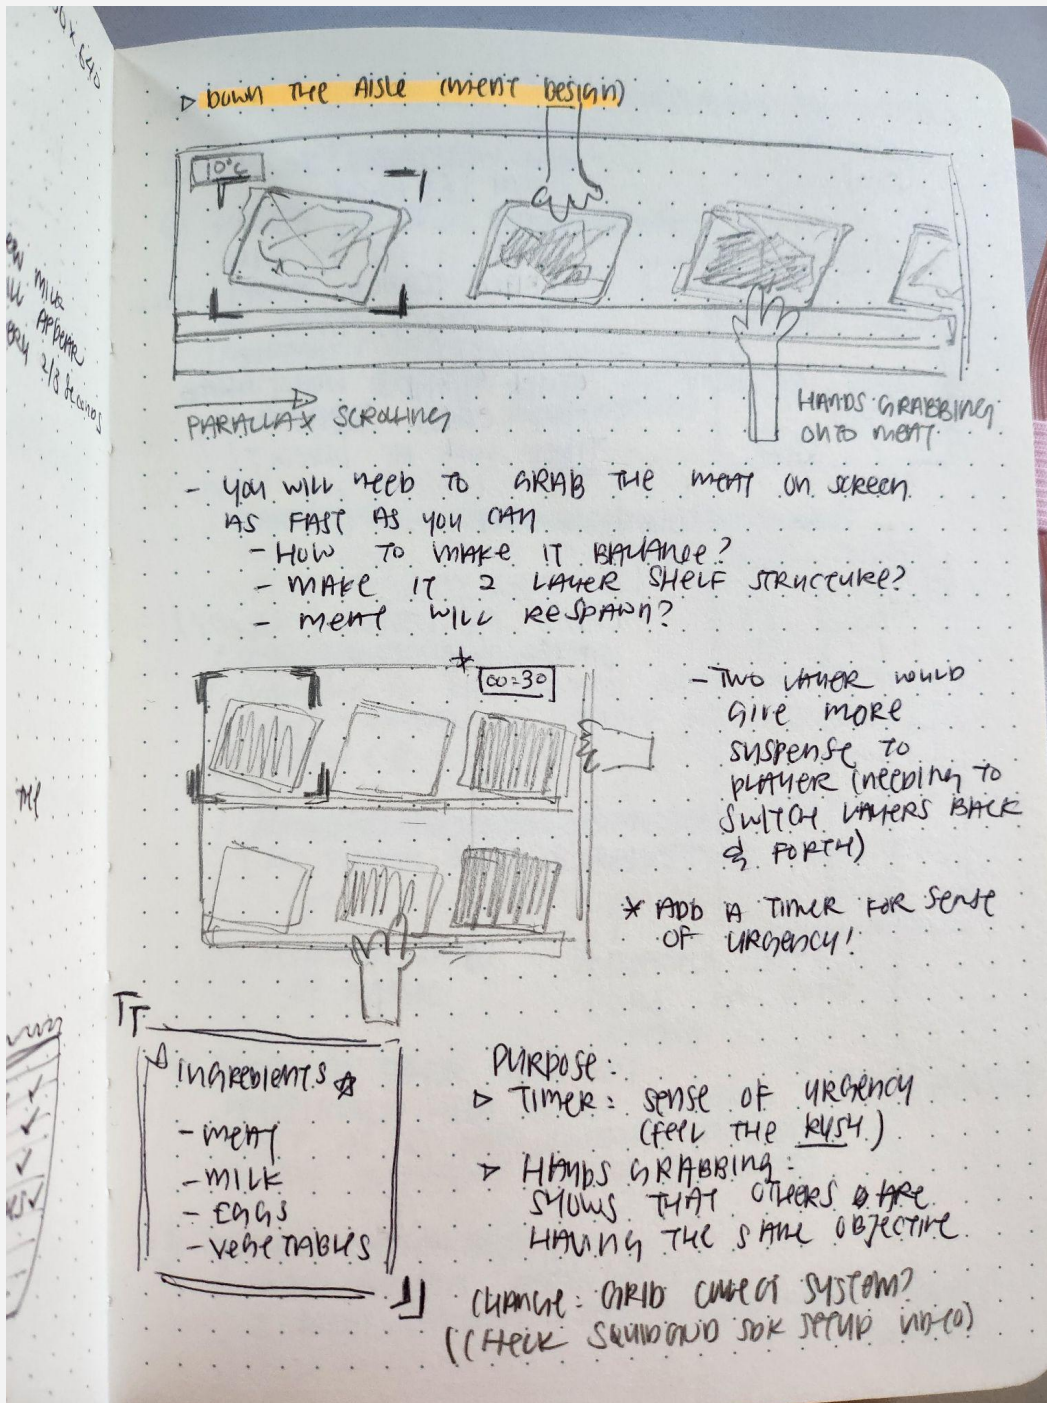 0 x 640
▷ DOWN THE AISLE (MEAT DESIGN)
10°C
PARALLAX SCROLLING
HANDS GRABBING
ONTO MEAT
- YOU WILL NEED TO GRAB THE MEAT ON SCREEN
AS FAST AS YOU CAN
- HOW TO MAKE IT BALANCE?
- MAKE IT 2 LAYER SHELF STRUCTURE?
- MEAT WILL RESPAWN?
* 00:30
- TWO LAYER WOULD
GIVE MORE
SUSPENSE TO
PLAYER (NEEDING TO
SWITCH LAYERS BACK
& FORTH)
* ADD A TIMER FOR SENSE
OF URGENCY!
INGREDIENTS
- MEAT
- MILK
- EGGS
- VEGETABLES
PURPOSE:
▷ TIMER: SENSE OF URGENCY
(FEEL THE RUSH)
▷ HANDS GRABBING:
SHOWS THAT OTHERS ARE
HAVING THE SAME OBJECTIVE
CHANGE: GRID SYSTEM?
(CHECK SDK SETUP VIDEO)
MILK
APPEAR
2/3 SECONDS